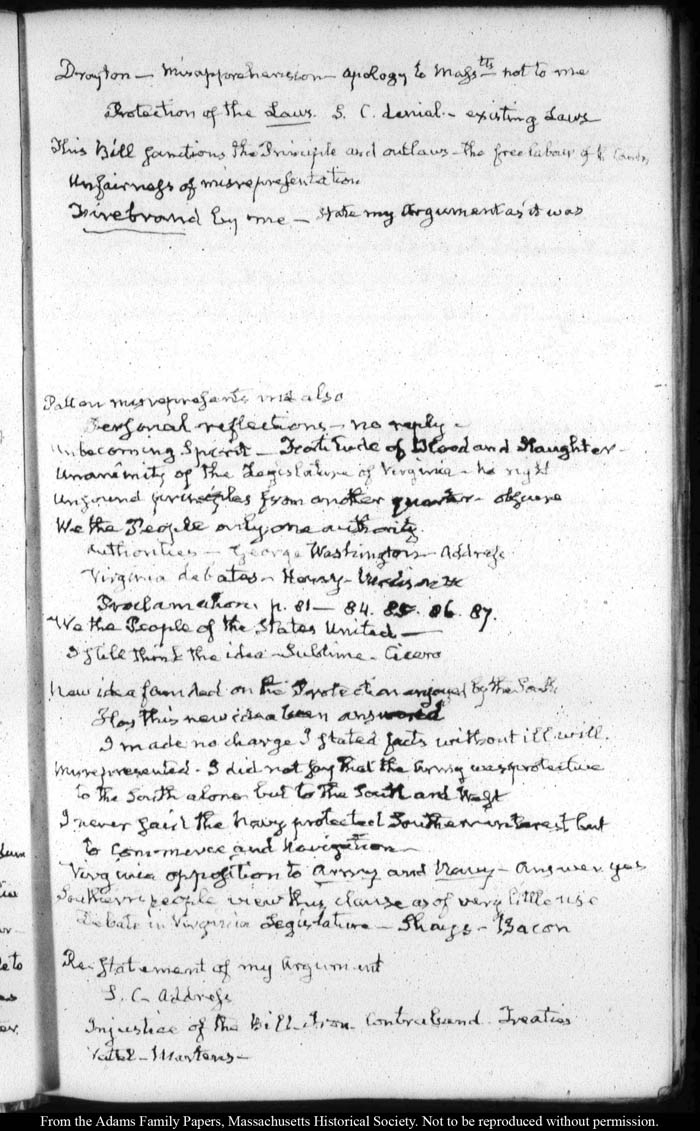 Drayton — misapprehension — apology to Masstts not to me
Protection of the Laws. S. C. denial — existing Laws
This Bill sanctions the Principle and outlaws — the free labour of the
Unfairness of misrepresentation
Firebrand by me — state my Argument as it was
Patton misrepresents me also
Personal reflections — no reply —
Unbecoming Spirit — of Blood and Slaughter —
Unanimity of the Legislature of Virginia — no right
Unsound principles from another quarter — obscure
We the People only one authority.
Authorities — George Washington — Address
Virginia debates — Henry —
Proclamation p. 81 — 84. 85. 86. 87.
We the People of the States United —
I still think the idea Sublime — Cicero
New idea founded on the Protection enjoyed by the South
Has this new idea been answered
I made no charge I stated facts without ill will.
Misrepresented — I did not say that the Army was protective
to the South alone but to the South and West
I never said the Navy protected Southern interest but
to Commerce and Navigation —
Virginia opposition to Army and Navy — Answer yes
Southern people view this clause as of very little use
Debate in Virginia Legislature — Shays — Bacon
Re-statement of my Argument
S. C. Address
Injustice of the Bill — Iron — Contraband — Treaties
Vattel — Martens —
From the Adams Family Papers, Massachusetts Historical Society. Not to be reproduced without permission.